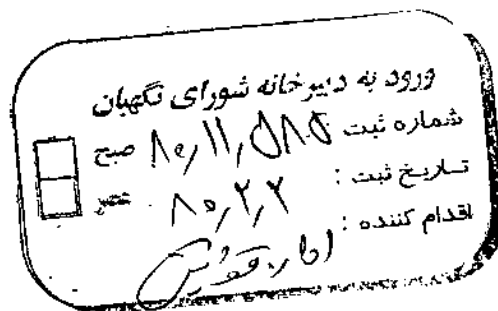 ورود به دبیرخانه شورای نگهبان
شماره ثبت ۸۰٫۱۱٫۵۸۵ صبح
تاریخ ثبت : ۸۰٫۲٫۲ عصر
اقدام کننده :